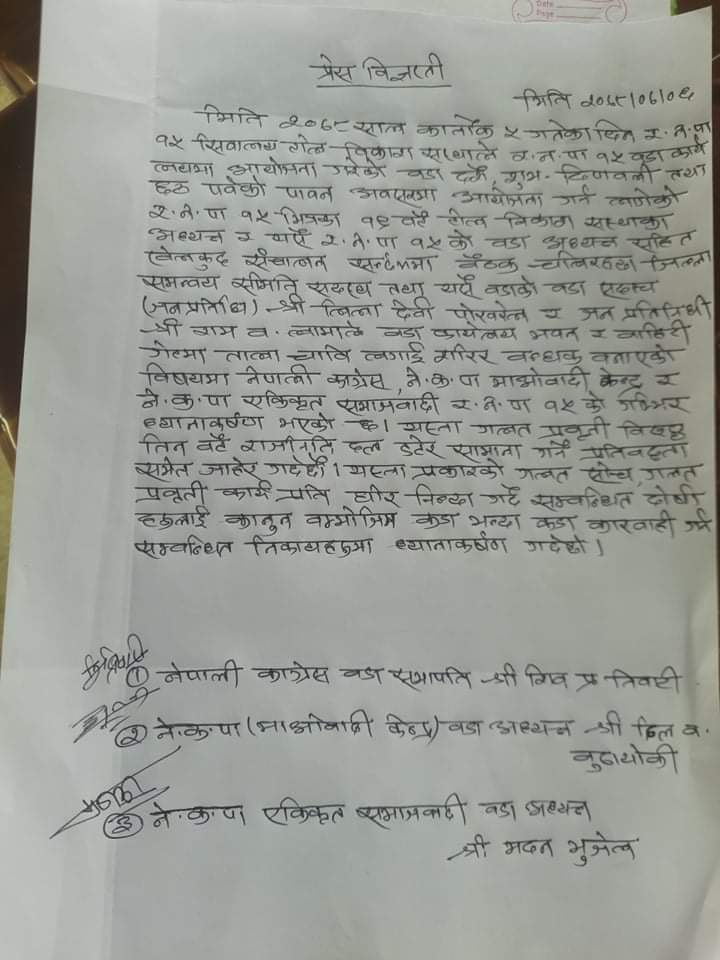 Date
Page
प्रेस विज्ञप्ती
मिति २०७८/०७/०६
मिति २०७८ साल कार्तीक ५ गतेका दिन र.न.पा
१५ सिवालय टोल विकास सस्थाले र.न.पा १५ वडा कार्य
लयमा आयोजना गरेको वडा दशैं शुभ-दिपावली तथा
छठ पर्वको पावन अवसरमा आयोजना गर्न लागेको
र.न.पा १५ भित्रका १९ वटै टोल विकास सस्थाका
अध्यक्ष र यसै र.न.पा १५ को वडा अध्यक्ष सहित
खेलकुद संचालन सन्दर्भमा बैठक जिल्ला
समन्वय समिति सदस्य तथा यसै वडाको वडा सदस्य
(जनप्रतिनिधि) श्री लिला देवी पोखरेल र जन प्रतिनिधी
श्री राम ब. लामाले वडा कार्यलय भवन र बाहिरी
गेटमा ताल्चा चाबि लगाई शरिर बन्धक बनाएको
विषयमा नेपाली काग्रेस, ने.क.पा माओवादी केन्द्र र
ने.क.पा एकिकृत समाजवादी र.न.पा १५ को गम्भिर
ध्यानाकर्षण भएको छ। यस्ता गलत प्रवृती विरुद्ध
तिन वटै राजीनिति दल डटेर सामाना गर्ने प्रतिवद्धता
समेत जाहेर गर्दछौं। यस्ता प्रकारको गलत सोच, गलत
प्रवृती कार्य प्रति घोर निन्दा गर्दै सम्वन्धित दोषी
हरुलाई कानुन वम्मोजिम कडा भन्दा कडा कारवाही गर्न
सम्वन्धित निकायहरुमा ध्यानाकर्षण गर्दछौं।
① नेपाली काग्रेस वडा सभापति श्री शिव प्र तिवारी
② ने.क.पा (माओवादी केन्द्र) वडा अध्यक्ष श्री दिल ब.
बुढाथोकी
③ ने.क.पा एकिकृत समाजवादी वडा अध्यक्ष
श्री मदन भुजेल